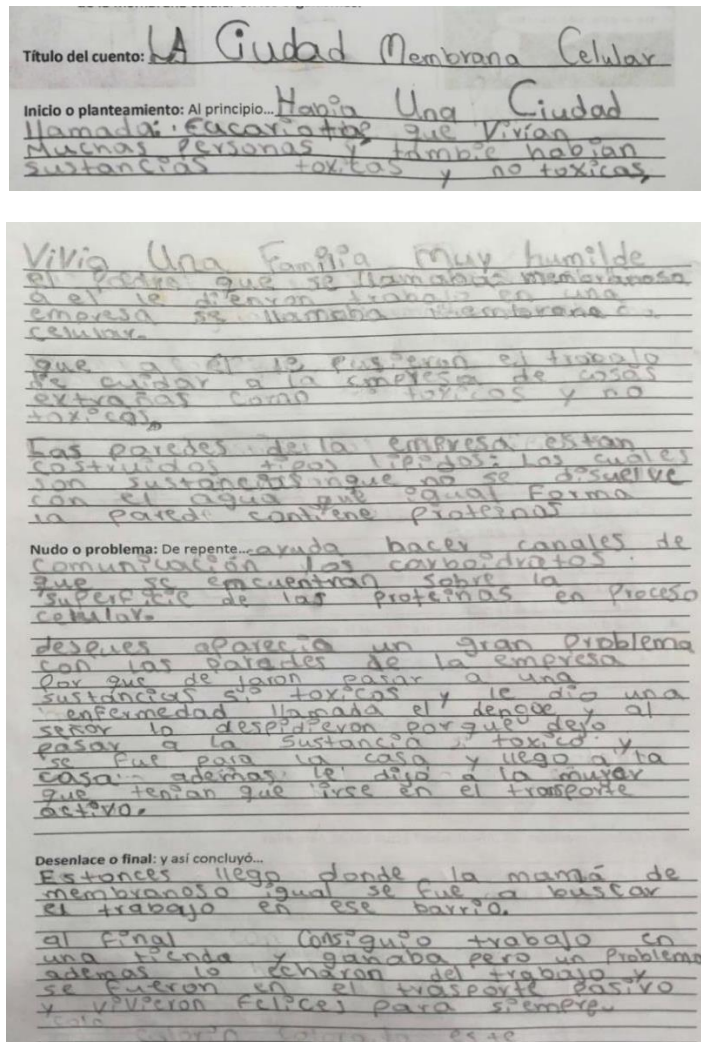 Título del cuento: LA Ciudad Membrana Celular
Inicio o planteamiento: Al principio... Había Una Ciudad
llamada: Eucariotas que Vivían
Muchas Personas y tambie habian
sustancias toxicas y no toxicas,
ViVia Una Familia muy humilde
el padre que se llamabas membranoso
a el le dienron trabajo en una
empresa se llamaba membrana
celular.
que a él le pusieron el trabajo
de cuidar a la empresa de cosas
extrañas como toxicos y no
toxicas,
Las paredes de la empresa estan
costruidos tipos lipidos: Los cuales
son sustancias que no se disuelve
con el agua que igual Forma
la pared contiene proteinas
Nudo o problema: De repente... ayuda hacer canales de
comunicación los carboidratos.
que se encuentran sobre la
superficie de las proteinas en Proceso
celular.
despues aparecia un gran problema
con las paredes de la empresa
por que de jaron pasar a una
sustancias si toxicos y le dio una
enfermedad llamada el dengue y al
señor lo despidieron porque dejo
pasar a la sustancia toxico y
se fue para la casa y llego a la
casa ademas le dijo a la mujer
que tenian que irse en el transporte
activo.
Desenlace o final: y así concluyó...
Estonces llego donde la mamá de
membranoso igual se fue a buscar
el trabajo en ese barrio.
al Final consiguio trabajo en
una tienda y ganaba pero un problema
ademas lo echaron del trabajo y
se fueron en el trasporte pasivo
y vivieron felices para siempre.
este